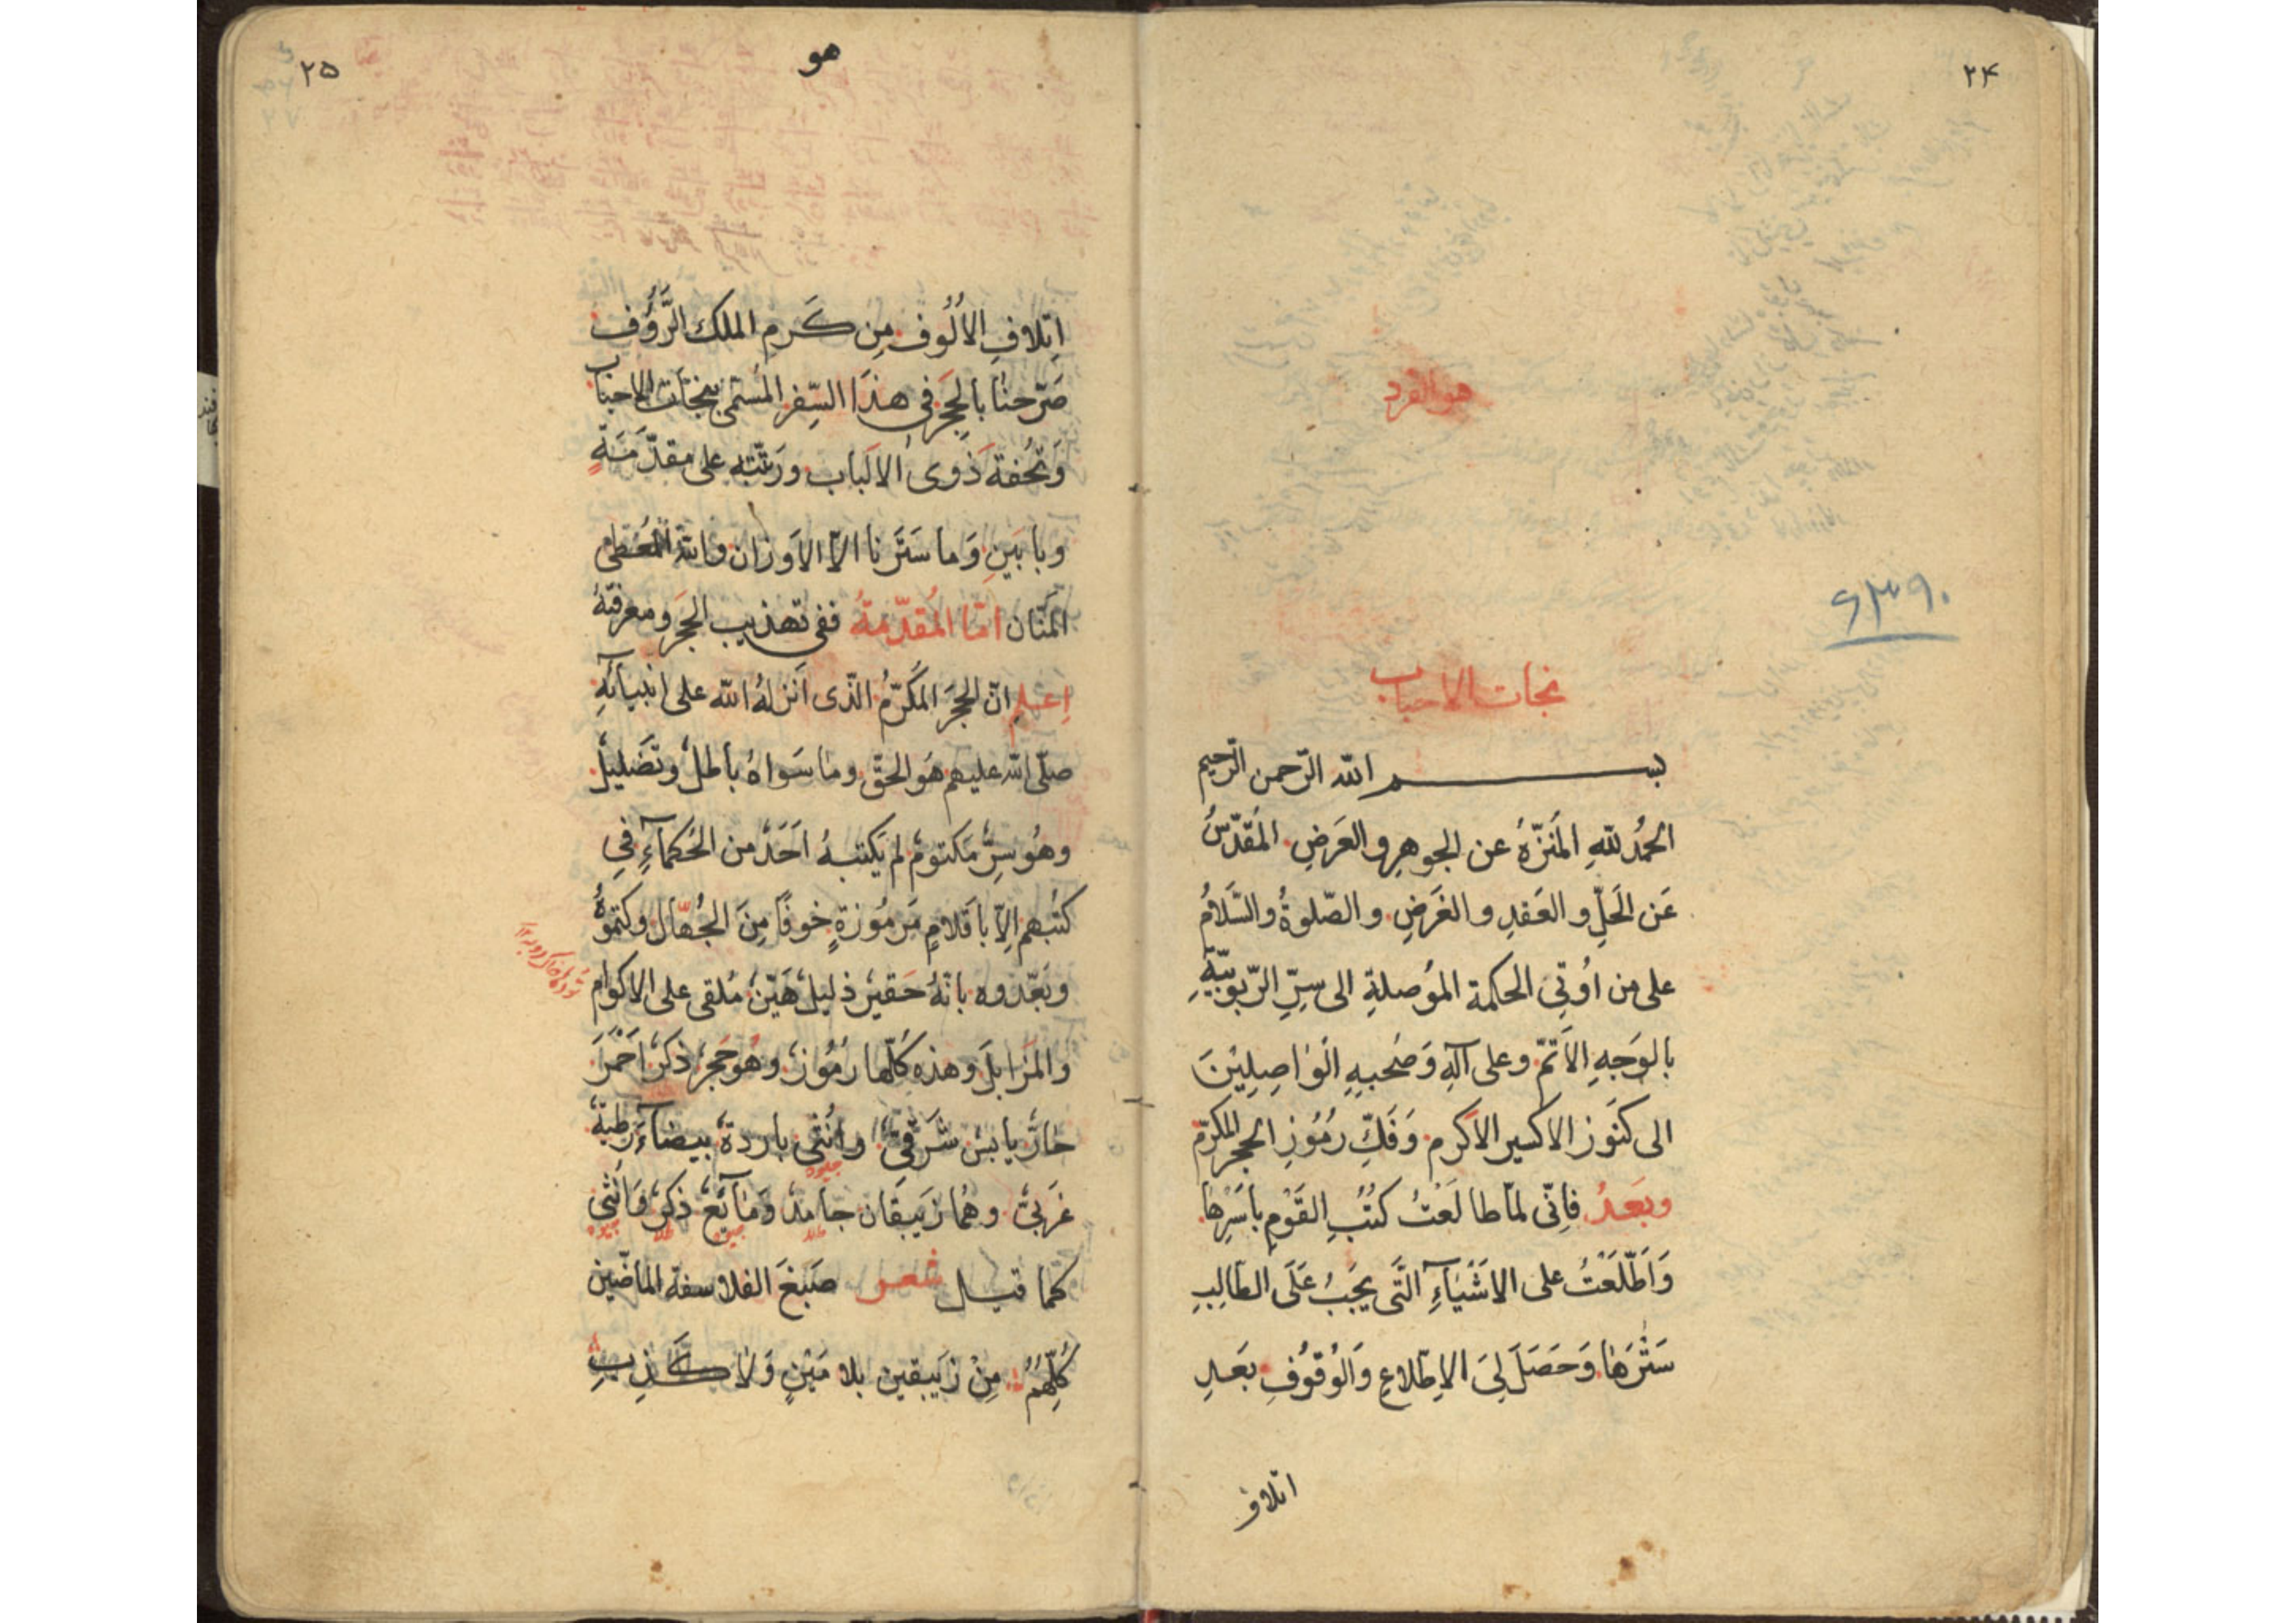 ٢۴
هو الفرد
۶۳۹۰
نجات الاحباب
بسم الله الرّحمن الرّحیم
الحَمُد للّهِ المُنَزّهُ عن الجوهرِ والعَرَضِ المُقدّسُ
عَن الحَلِّ و العَقدِ و الغَرَضِ و الصّلوةُ والسَّلامُ
علی من اُوتِی الحکمة المُوصلةِ الی سِرِّ الرّبوبیّةِ
بالوَجهِ الاَتمّ وعلی آلهِ وَصَحبهِ الوٰاصِلِیْنَ
الی کنَوز الاکسیر الاکرم وَفَكِّ رُمُوزِ الحجر المکرّم
وبَعدُ فانّی لمّا طالَعْتُ کتُبِ القَوْمِ باَسْرِها
وَاَطّلَعْتُ علی الاَشْیٰآءِ الَّتی یَجبُ عَلَی الطّالِبِ
سَتْرَهٰا وَحَصَلَ لِیَ الاِطّلاعِ وَالوُقوُفِ بعَدِ
اتلاف
هو
٢۵
اِتلافِ الاُلُوفِ مِن کَرمِ الملك الرَّؤُف
صَرّحنٰا بالحَجَرِ فی هذَا السِّفرِ المُسَمّی بنجٰات الاحبٰاب
وَتُحُفة ذَوی الالبٰاب ورَتّبتُه علی مقدّمَةٍ
وبابَینِ وَما سَتَرنا الّا الاَوزان والله المُعطی
المنّان امّا المُقدّمَةُ ففی تهذیب الحَجَر ومعرفتهُ
اِعلم انّ الحجَرَ المکَرّمُ الّذی اَنزلهُ الله علی انبیآئهِ
صلّی الله علیهم هَوالحقّ وما سَواهُ باطلٌ وتَضَلیلٌ
وهُو سِرٌّ مَکتومٌ لم یکتبهُ اَحَدٌ من الحُکمآءِ فِی
کتُبهم اِلّا باَقلامٍ مَرمُوزةٍ خوفًا مِنَ الجُهّال وکتمُوُهُ
وبَعّدوه بانّهُ حَقیرٌ ذلیلٌ هَیّنٌ مُلقی علی الاکوام
والمَزابلَ وهذه کُلّها رُمُوزٌ وهُوحَجرٌ ذکرٌ اَحْمَرَ
حارٌّ یابسٌ شَرقیٌّ وانُثی بارِدةٌ بیضآء رَطبةٌ
غَربیٌّ وهُما زَیبقان جٰامدٌ وَمٰآئعٌ ذکرٌ وَاُنثی
جیوه طلا جیوه طلا جیوه
کما قیل شعر صَبغَ الفلاسفة الماضین
کُلِّهِمُ مِنْ زَیبقین بلا مَیْنٍ وَلٰا کَذِبِ